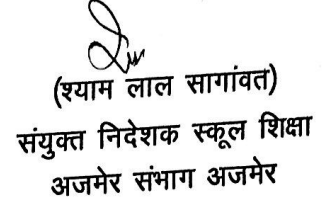 (श्याम लाल सागांवत)
संयुक्त निदेशक स्कूल शिक्षा
अजमेर संभाग अजमेर